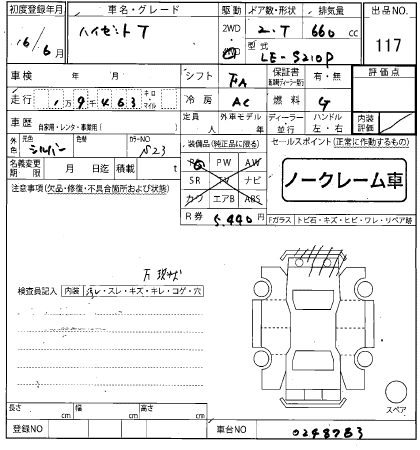 初度登録年月 車名・グレード 駆動 ドア数・形状 排気量 出品NO.
16/6月 ハイゼットT 2WD 4WD 2・T 660cc 117
型式 LE-S210P
車検 年 月 シフト FA 保証書 有・無 評価点
走行 1万9千463 キロ マイル 冷房 AC 燃料 G
定員 人 外車モデル 年 ディーラー 並行 ハンドル 左・右 内装評価
車歴 自家用・レンタ・事業用( )
外色 元色 シルバー 色替 カラーNO S23
装備品(純正品に限る) セールスポイント(正常に作動するもの)
PS PW AW
SR TV ナビ
カワ エアB ABS
ノークレーム車
名義変更期限 月 日迄 積載 t
R券 5,440円
注意事項(欠品・修復・不具合箇所および状態)
Fガラス トビ石・キズ・ヒビ・ワレ・リペア跡
検査員記入 内装 汚レ・スレ・キズ・キレ・コゲ・穴
スペア
長さ cm 幅 cm 高さ cm
登録NO 車台NO 0248783